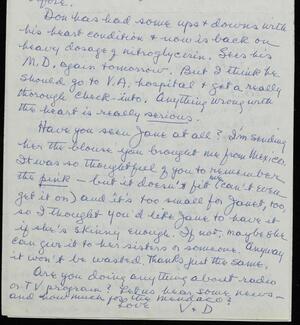 Don has had some ups & downs with
his heart condition & now is back on
heavy dosage of nitroglycerin. Sees his
M.D. again tomorrow. But I think he
should go to V.A. hospital & get a really
thorough check-into. Anything wrong with
the heart is really serious.
Have you seen Jane at all? I'm sending
her the blouse you brought me from Mexico.
It was so thoughtful of you to remember
the pink – but it doesn't fit me (can't even
get it on) and it's too small for Janet, too,
so I thought you'd like Jane to have it
if she's skinny enough. If not, maybe she
can give it to her sisters or someone. Anyway
it won't be wasted. Thanks just the same.
Are you doing anything about radio
or TV program? Let us hear some news –
and how much for the
Love V & D